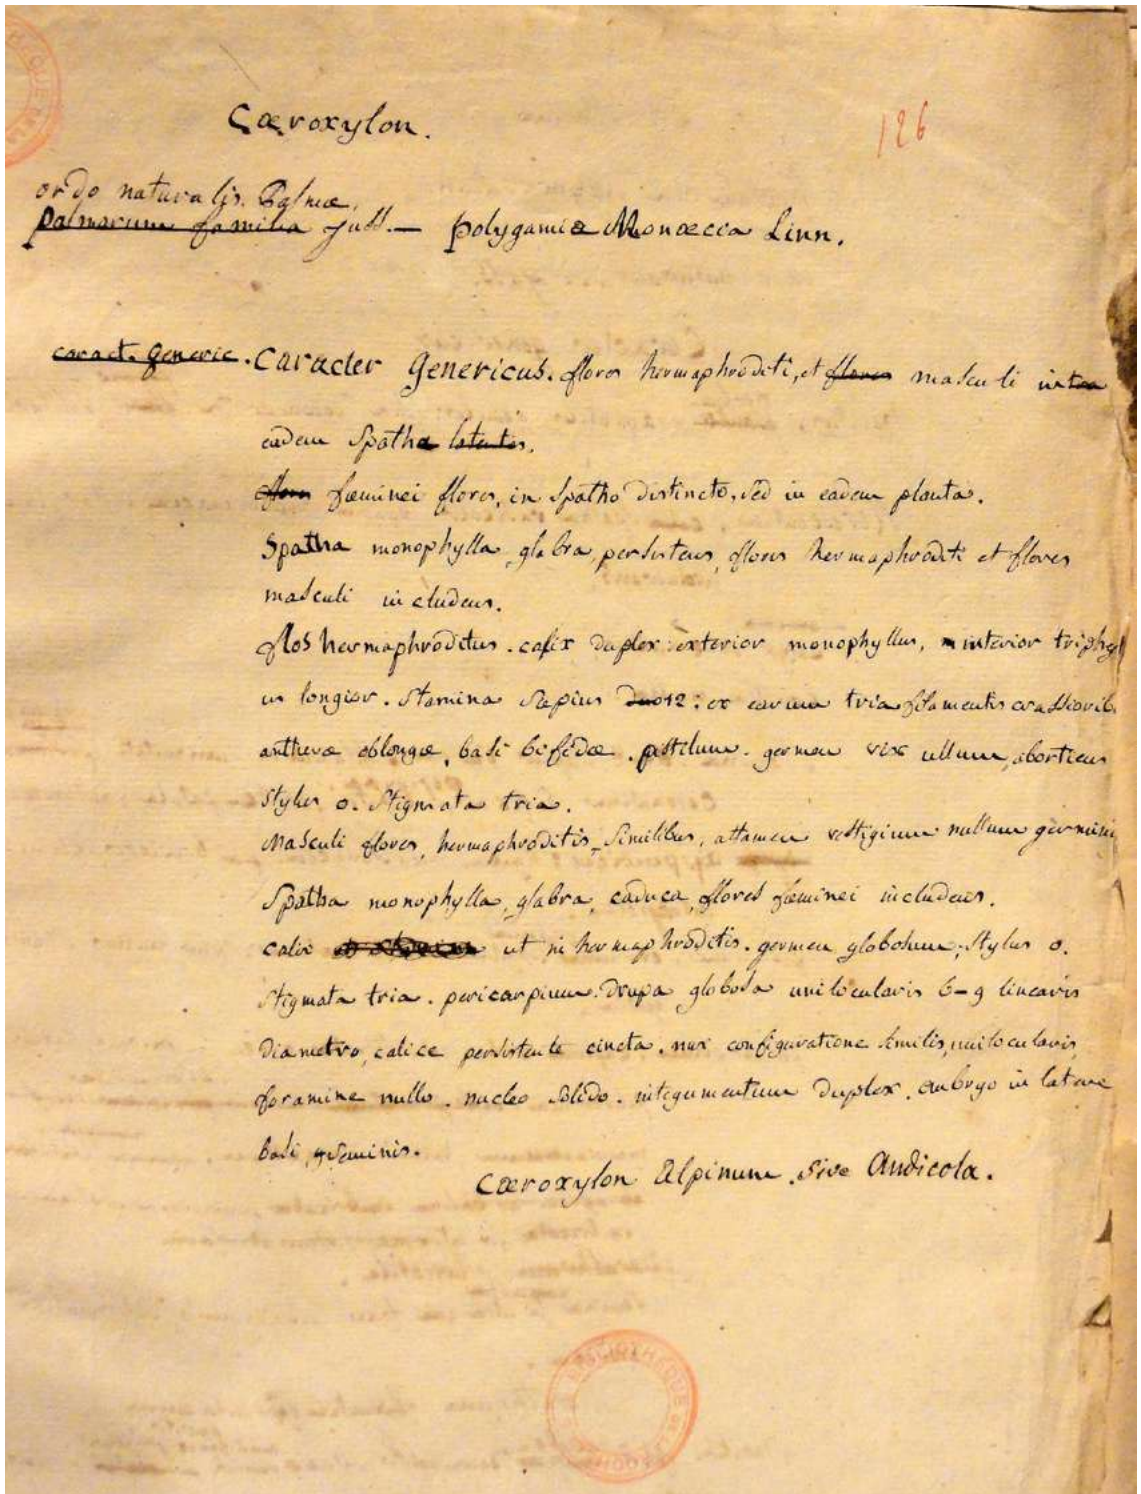 Cœroxylon.
126
ordo naturalis. Palmæ.
palmarum familia Juss. — polygamia Monœcia Linn.
caract. generic. Caracter Genericus. flores hermaphroditi, et flores masculi intra
eadem Spatha latentes.
flores fœminei flores, in Spatho distincto, sed in eadem planta.
Spatha monophylla, glabra, persistens, flores hermaphroditi et flores
masculi includens.
flos hermaphroditus. calix duplex: exterior monophyllus, interior triphyl
us longior. Stamina sæpius duo 12: ex earum tria filamentis crassiorib.
antheræ oblongæ, basi bifidæ. pistilum. germen vix ullum, abortiens
Stylus o. Stigmata tria.
Masculi flores, hermaphroditis similibus, attamen vestigium nullum germinis
Spatha monophylla, glabra, caduca, flores fœminei includens.
calix ut in hermaphroditis. germen globosum; Stylus o.
Stigmata tria. pericarpium: Drupa globosa unilocularis 6-9 linearis
Diametro, calice persistente cincta. nux configuratione similis, unilocularis,
foramine nullo. nucleo solido. integumentum duplex. embryo in latere
basi seminis.
Cœroxylon Alpinum. Sive Andicola.
BIBLIOTHEQUE DE